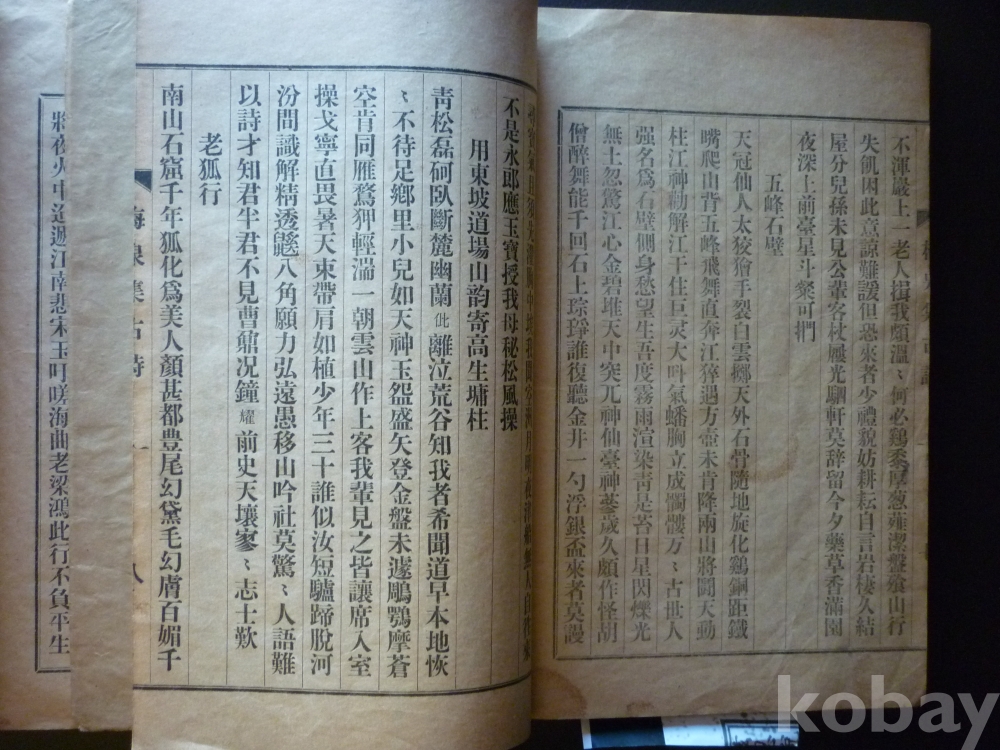 不渾巖上一老人揖我頗溫〻何必鷄黍摩葱薤潔盤飧山行
失飢困此意諒難諼但恐來者少禮貌妨耕耘自言岩棲久結
屋分兒孫未見公輩客杖屨光駟軒莫辭留今夕藥草香滿園
夜深上前臺星斗粲可捫
五峰石壁
天冠仙人太狡獪手裂白雲擲天外石骨隨地旋化鷄銅距鐵
嘴爬山背五峰飛舞直奔江猝遇方壺未肯降兩山將鬪天動
柱江神勒解江干住巨灵大吁氣蟠胸立成髑髏万〻古世人
强名爲石壁側身愁望生吾度霧雨渲染靑是苔日星閃爍光
無土忽驚江心金碧堆天中突兀神仙臺神蔘歲久頗作怪胡
僧醉舞能千回石上琮琤誰復聽金井一勺浮銀盃來者莫謾
不是永郎應玉寶授我母秘松風操
用東坡道場山韵寄高生墉柱
靑松磊砢臥斷麓幽蘭仳離泣荒谷知我者希聞道早本地恢
〻不待足鄕里小兒如天神玉盌盛矢登金盤未遽鵰鶚摩蒼
空肯同雁鶩狎輕湍一朝雲山作上客我輩見之皆讓席入室
操戈寧直畏暑天束帶肩如植少年三十誰似汝短驢蹄脫河
汾間識解精透毿八角願力弘遠愚移山吟社莫驚〻人語難
以詩才知君半君不見曹䴡况鐘耀前史天壤寥〻志士歎
老狐行
南山石窟千年狐化爲美人顏甚都豊尾幻黛毛幻膚百媚千
集古詩
八
江南悲宋玉吁嗟海曲老梁鴻此行不負平生
kobay